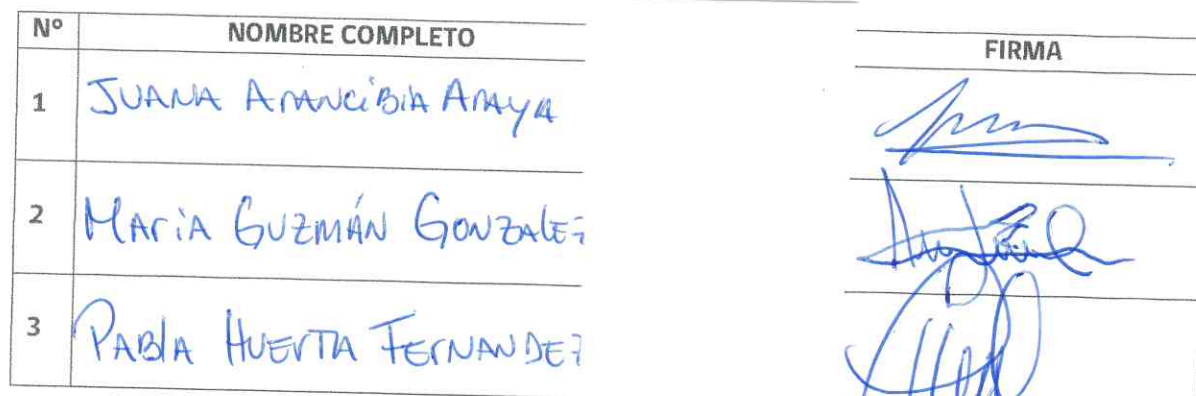 Nº NOMBRE COMPLETO FIRMA
1 JUANA ARANCIBIA ARAYA
2 MARIA GUZMÁN GONZALEZ
3 PABLA HUERTA FERNANDEZ